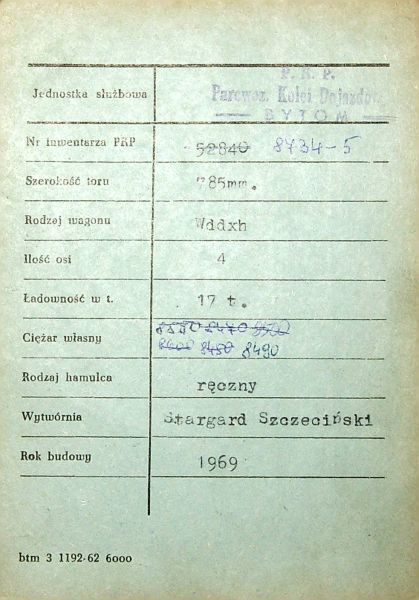 Jednostka służbowa P. K. P.
Parowoz. Kolei Dojazdow.
BYTOM
Nr inwentarza PKP 52840 8734-5
Szerokość toru 785mm.
Rodzaj wagonu Wddxh
Ilość osi 4
Ładowność w t. 17 t.
Ciężar własny 8470
8450 8490
Rodzaj hamulca ręczny
Wytwórnia Stargard Szczeciński
Rok budowy 1969
btm 3 1192-62 6000